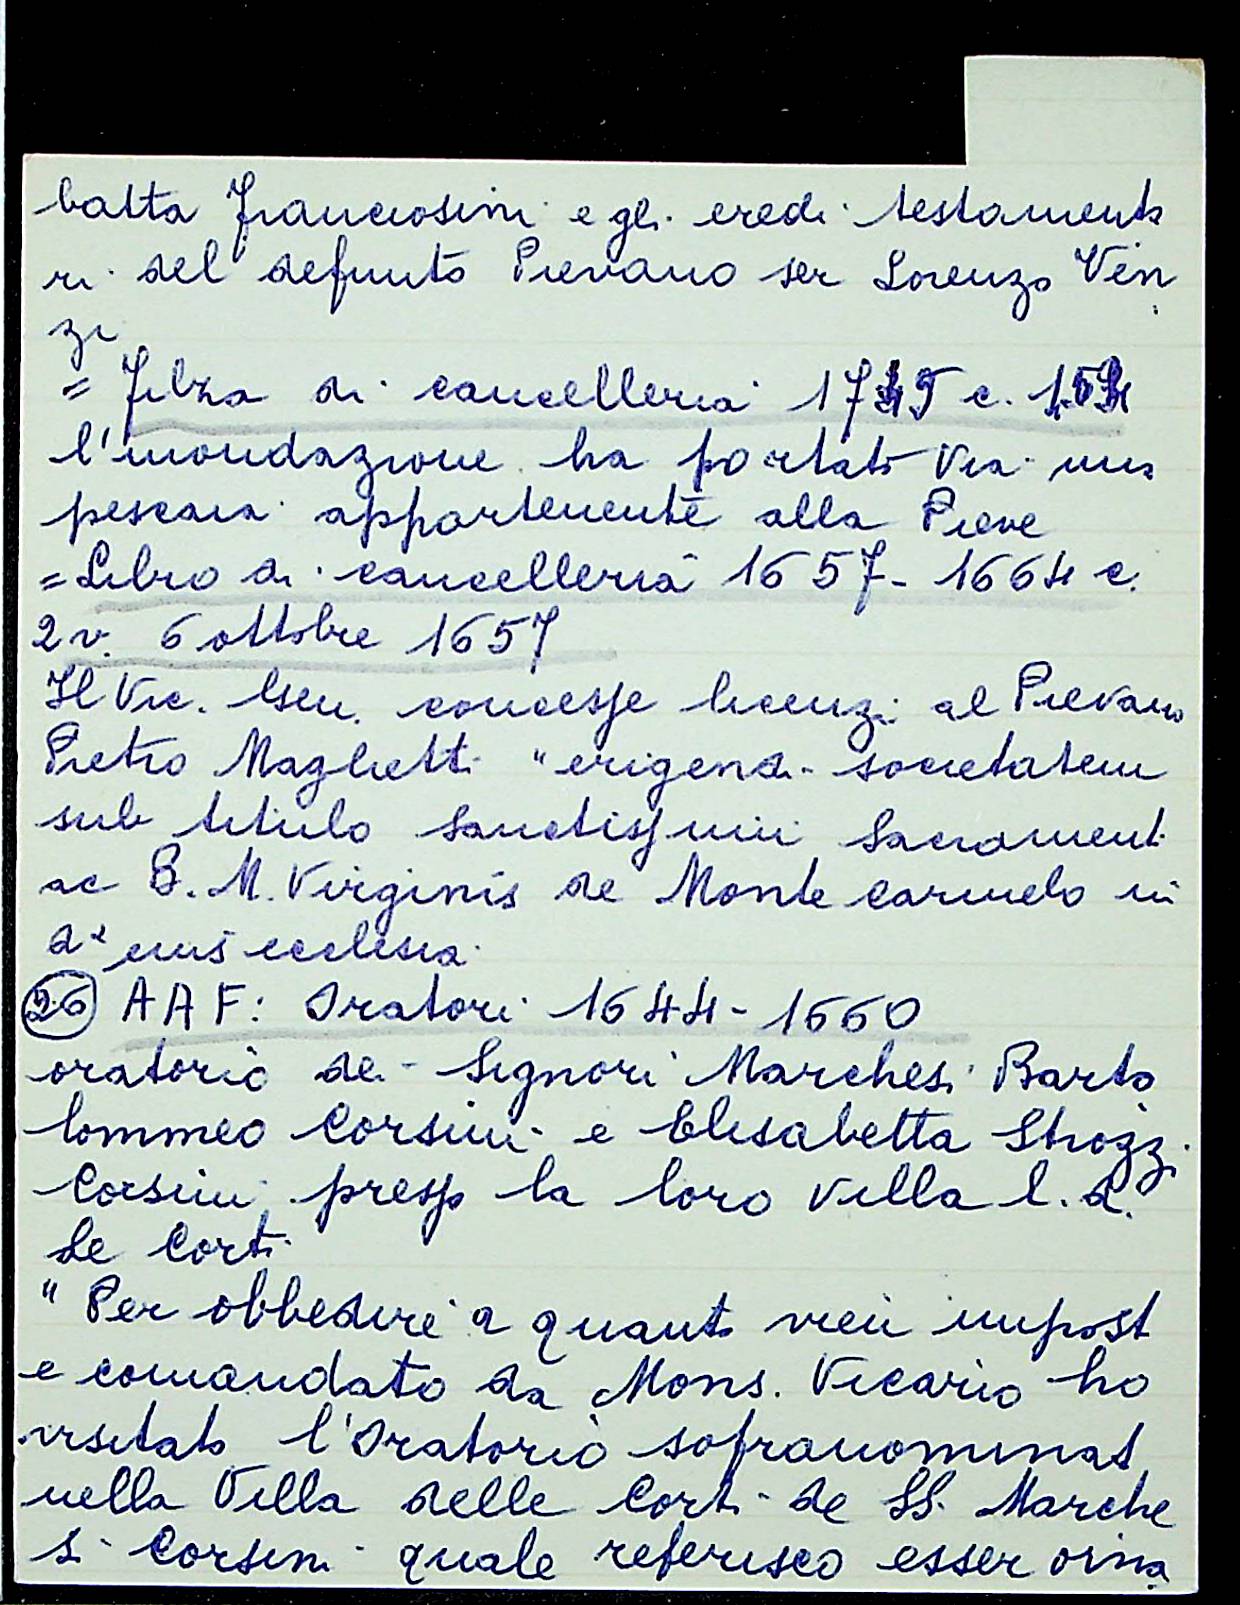 batta Franciosini e gli eredi testamenta
ri del defunto Pievano ser Lorenzo Vin
zi
= Filza di cancelleria c.
l'inondazione ha portato via una
pescaia appartenente alla Pieve
= Libro di cancelleria 1657-1664 c.
2v. 6 ottobre 1657
Il Vic. Gen. concesse licenzi al Pievano
Pietro Maglietti "erigendi societatem
sub titulo Sanctissimi Sacramenti
ac B. M. Virginis de Monte Carmelo in
da eius ecclesia
26 AAF: Oratori 1644-1660
oratorio dei Signori Marchesi Barto
lommeo Corsini e Elisabetta Strozzi
Corsini presso la loro villa l. d.
Le Corti
"Per obbedire a quanto vien imposto
e comandato da Mons. Vicario ho
visitato l'Oratorio sopranominat
nella Villa delle Corti de SS. Marche
si Corsini quale referisco esser orna